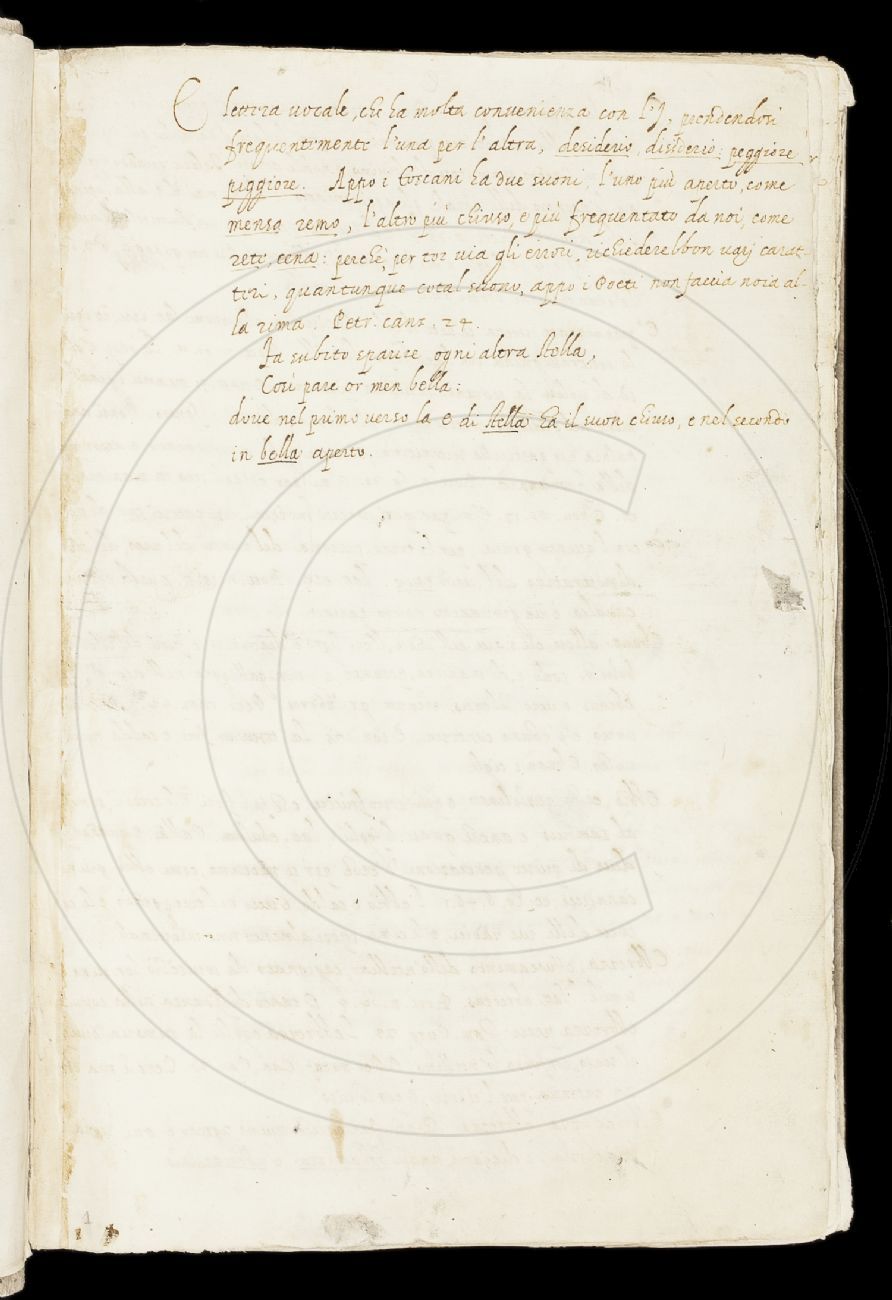 E lettera uocale, che ha molta conuenienza con l'I, prendendosi
frequentemente l'una per l'altra, desiderio, disiderio: peggiore
piggiore. Appo i Toscani ha due suoni, l'uno più aperto, come
mensa remo, l'altro più chiuso, e più frequentato da noi, come
rete, cena: perchè, per tor uia gli errori, richiederebbon uarj carat-
teri, quantunque cotal suono, appo i Poeti non faccia noia al-
la rima. Petr. canz. 24.
Fa subito sparire ogni altra stella,
Così pare or men bella:
doue nel primo uerso la e di stella ha il suon chiuso, e nel secondo
in bella aperto.
1